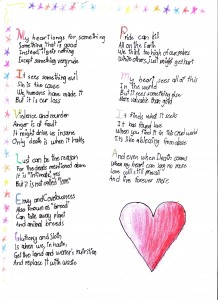 My heart longs for something
Something that is good
Instead it gets nothing
Except something very rude
It sees something evil
Sin is the cause
We humans have made it
But it is our loss
Violence and murder
Anger is at fault
It might drive us insane
Only death is what it halts
Lust can be the reason
For the deaths mentioned above
It is "intimate" yes
But it is not called "love"
Envy and Covetousness
Also known as "greed"
Can take away plant
And animal breeds
Gluttony and Sloth
Is when we, in haste,
Get the land and water's nutrition
And replace it with waste
Pride can kill
All on the Earth
We think too high of ourselves
While others, just might get hurt
My heart sees all of this
In the world
But it sees something else
More valuable than gold
It finds what it seeks
It has found love
When you find it in this cruel world
It's like a blessing from above
And even when Death comes
When my heart can long no more
Love will still
And live forever more